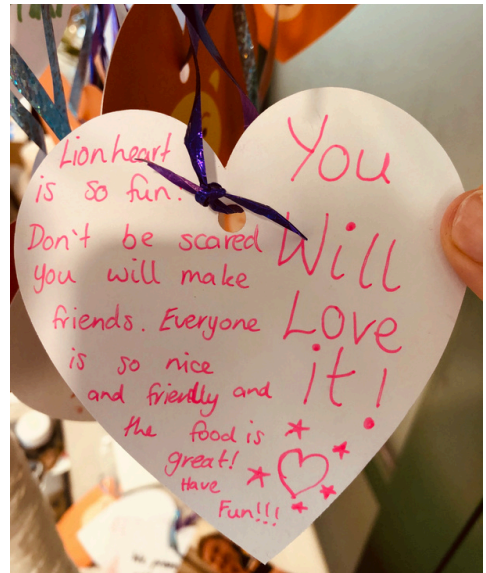 Lionheart
is so fun.
Don't be scared
you will make
friends. Everyone
is so nice
and friendly and
the food is
great!
Have
Fun!!!
You
Will
Love
it!